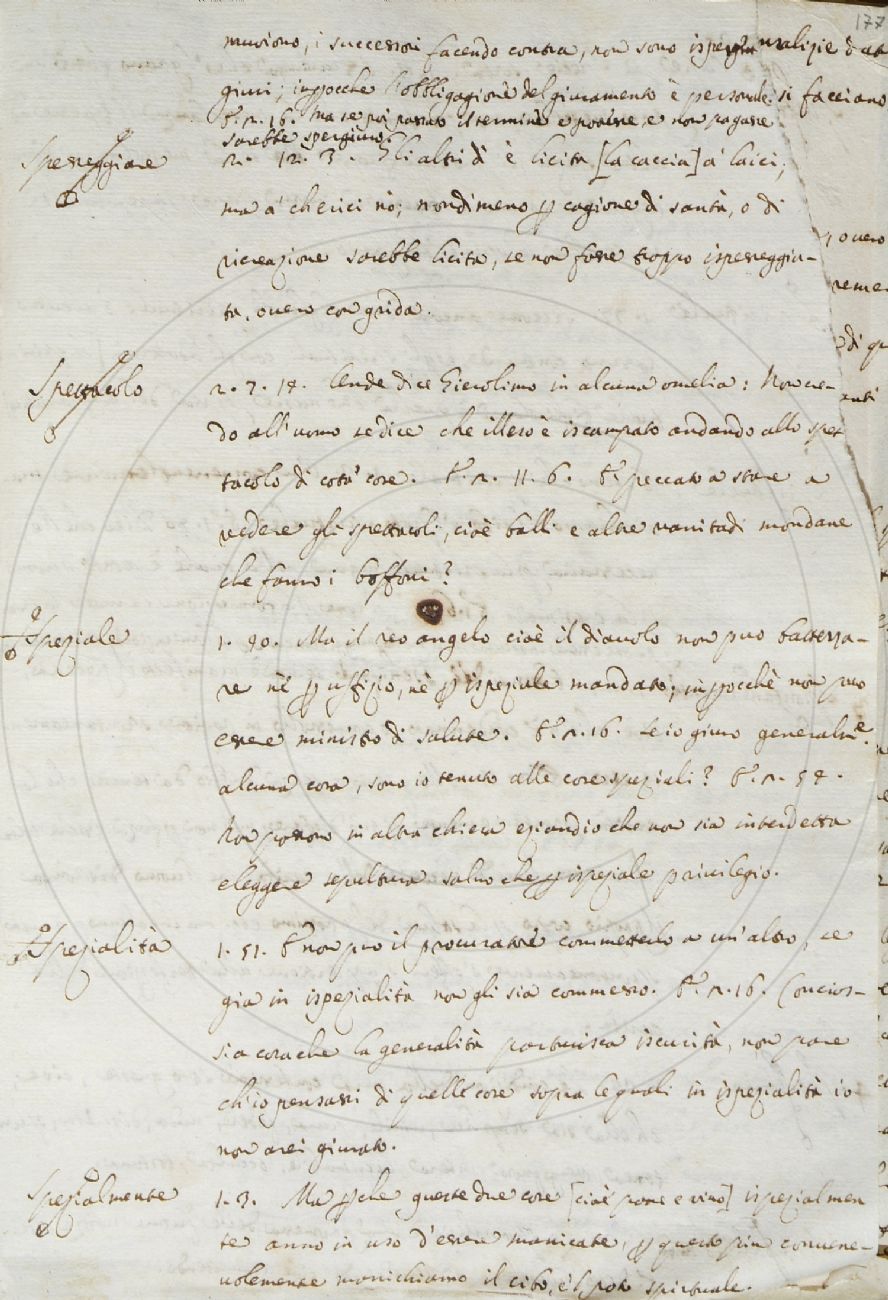 177
muoiono, i successori facendo contra, non sono
giuri; imperocche l'obbligagione del giuramento è personale si facciano
E r. 2. 16. Ma se poi passato il termine e potesse, e non pagasse
sarebbe spergiuro.
Spereggiare
2. 12. 3. Gli altri dì è licita [la caccia] a' laici,
ma a' cherici nò; nondimeno per cagione di sanità, o di
ricreazione sarebbe licita, se non fosse troppo ispesseggia-
ta, overo con grida.
overo
di qu
Spettacolo
2. 7. 14. Lende dice Gierolimo in alcuna omelia: Non cre-
do all'uomo se dice che illeso è iscampato andando allo spet
tacolo di cota' cose. E r. 2. 11. 6. E peccato a stare a
vedere gli spettacoli, cioè balli e altre vanitadi mondane
che fanno i boffoni?
Speziale
1. 40. Ma il reo angelo cioè il diavolo non puo battezza-
re nè per uffizio, nè per ispeziale mandato; imperocchè non puo
essere ministro di salute. E r. 2. 16. Se io giuro generalme.
alcuna cosa, sono io tenuto alle cose speziali? E r. 2. 54.
Non possono in altra chiesa eziandio che non sia interdetta
eleggere sepultura salvo che per ispeziale privilegio.
Spezialità
1. 51. E non puo il procuratore commetterlo a un'altro, se
gia in ispezialità non gli sia commesso. E r. 2. 16. Concios-
sia cosa che la generalità partorisca iscurità, non pare
ch'io pensassi di quelle cose sopra le quali in ispezialità io
non arei giurato.
Spezialmente
1. 3. Ma perche queste due cose [cioè pane e vino] ispezialmen
te anno in uso d'essere manicate, per questo piu convene-
volemente manichiamo il cibo, e'l poto spirituale.